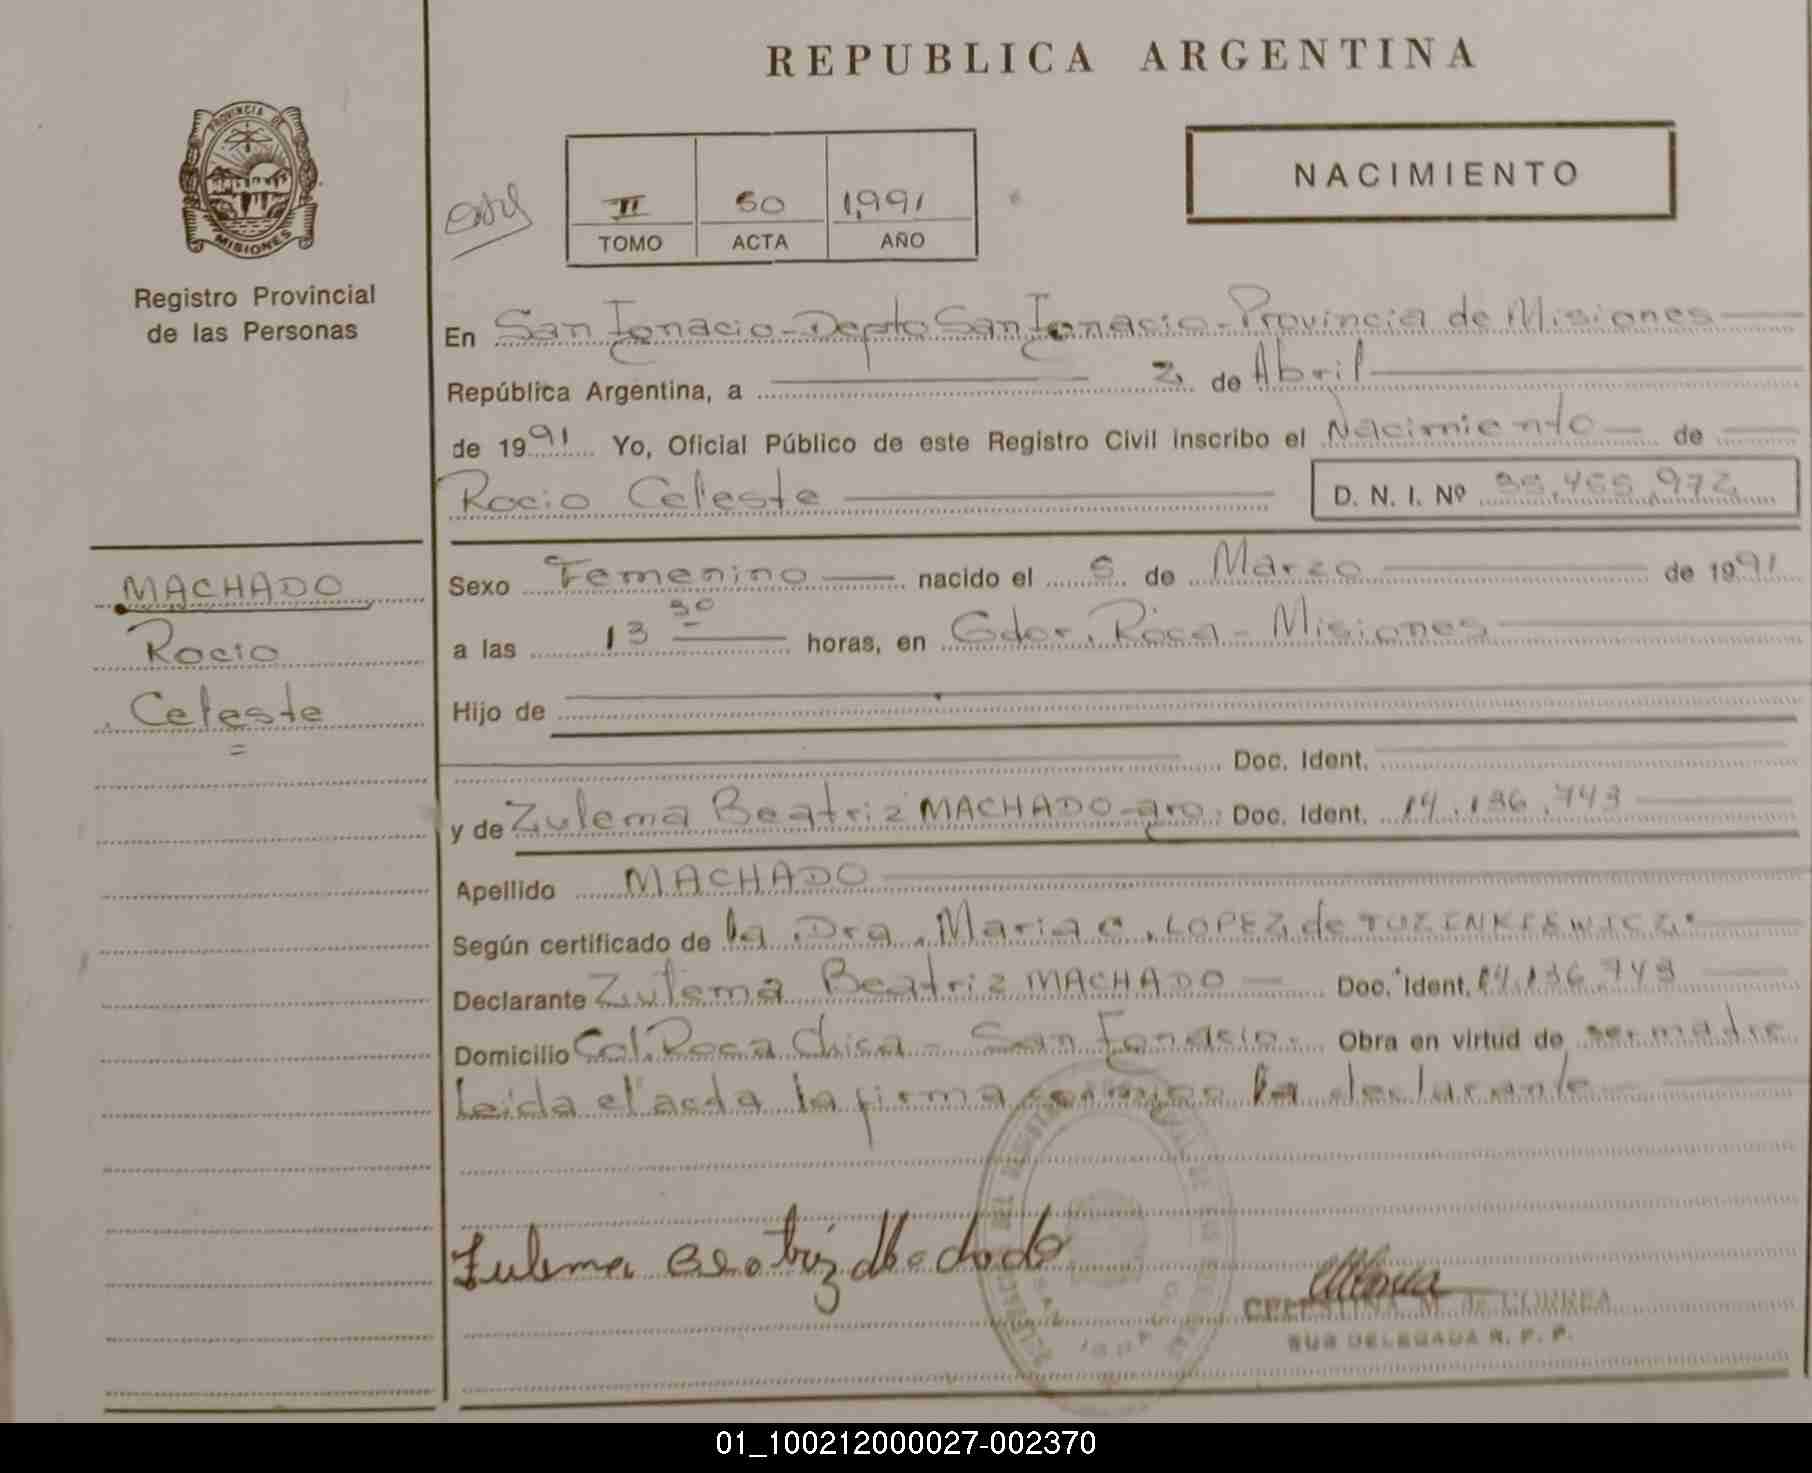 REPUBLICA ARGENTINA
PROVINCIA DE
MISIONES
Registro Provincial
de las Personas
II 50 1,991
TOMO ACTA AÑO
NACIMIENTO
En San Ignacio - Depto San Ignacio - Provincia de Misiones
República Argentina, a 2 de Abril
de 1991 Yo, Oficial Público de este Registro Civil inscribo el Nacimiento de
Rocio Celeste D. N. I. Nº
MACHADO
Rocio
Celeste
Sexo Femenino nacido el de Marzo de 1991
a las 13 30 horas, en Gdor. Roca - Misiones
Hijo de
Doc. Ident.
y de Zulema Beatriz MACHADO - arg. Doc. Ident. 14.136.743
Apellido MACHADO
Según certificado de la Dra. Maria C. LOPEZ de
Declarante Zulema Beatriz MACHADO Doc. Ident. 14.136.743
Domicilio Col. Roca Chica - San Ignacio. Obra en virtud de ser madre
Leida el acta la firma conmigo la declarante
Zulema Beatriz Machado
CELESTINA M. de CORREA
SUB DELEGADA R. P. P.
01_100212000027-002370